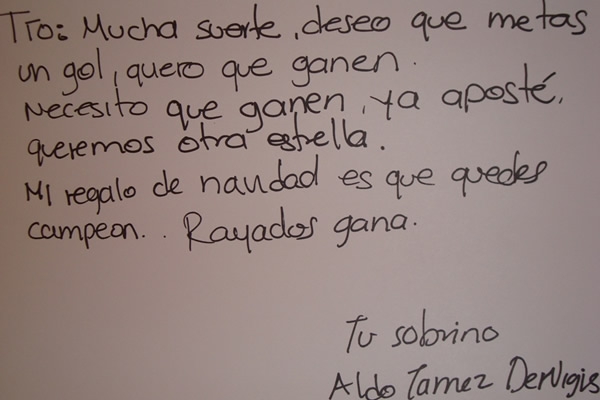 Tio: Mucha suerte, deseo que metas
un gol, quero que ganen.
Necesito que ganen, ya aposté,
queremos otra estrella.
Mi regalo de navidad es que quedes
campeon.. Rayados gana.
Tu sobrino
Aldo Tamez DeNigis